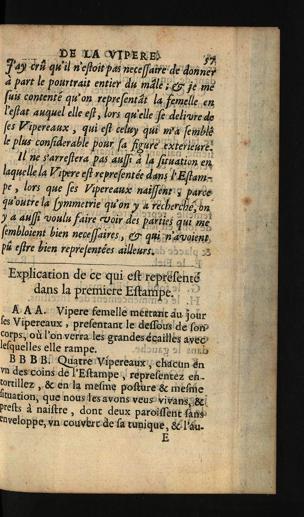 DE LA VIPERE. 57
J'ay crû qu'il n'estoit pas necessaire de donner
à part le pourtrait entier du mâle; & je me
suis contenté qu'on representât la femelle en
l'estat auquel elle est, lors qu'elle se delivre de
ses Vipereaux, qui est celuy qui m'a semblé
le plus considerable pour sa figure exterieure.
Il ne s'arrestera pas aussi à la situation en
laquelle la Vipere est representée dans l'Estam-
pe, lors que ses Vipereaux naissent; parce
qu'outre la symmetrie qu'on y a recherché, on
y a aussi voulu faire voir des parties qui me
sembloient bien necessaires, & qui n'avoient
pû estre bien representées ailleurs.
Explication de ce qui est representé
dans la premiere Estampe.
A A A. Vipere femelle mettant au jour
ses Vipereaux, presentant le dessous de son
corps, où l'on verra les grandes écailles avec
lesquelles elle rampe.
B B B B. Quatre Vipereaux, chacun en
vn des coins de l'Estampe, representez en-
tortillez, & en la mesme posture & mesme
situation, que nous les avons veus vivans, &
prests à naistre, dont deux paroissent sans
enveloppe, vn couvert de sa tunique, & l'au-
E